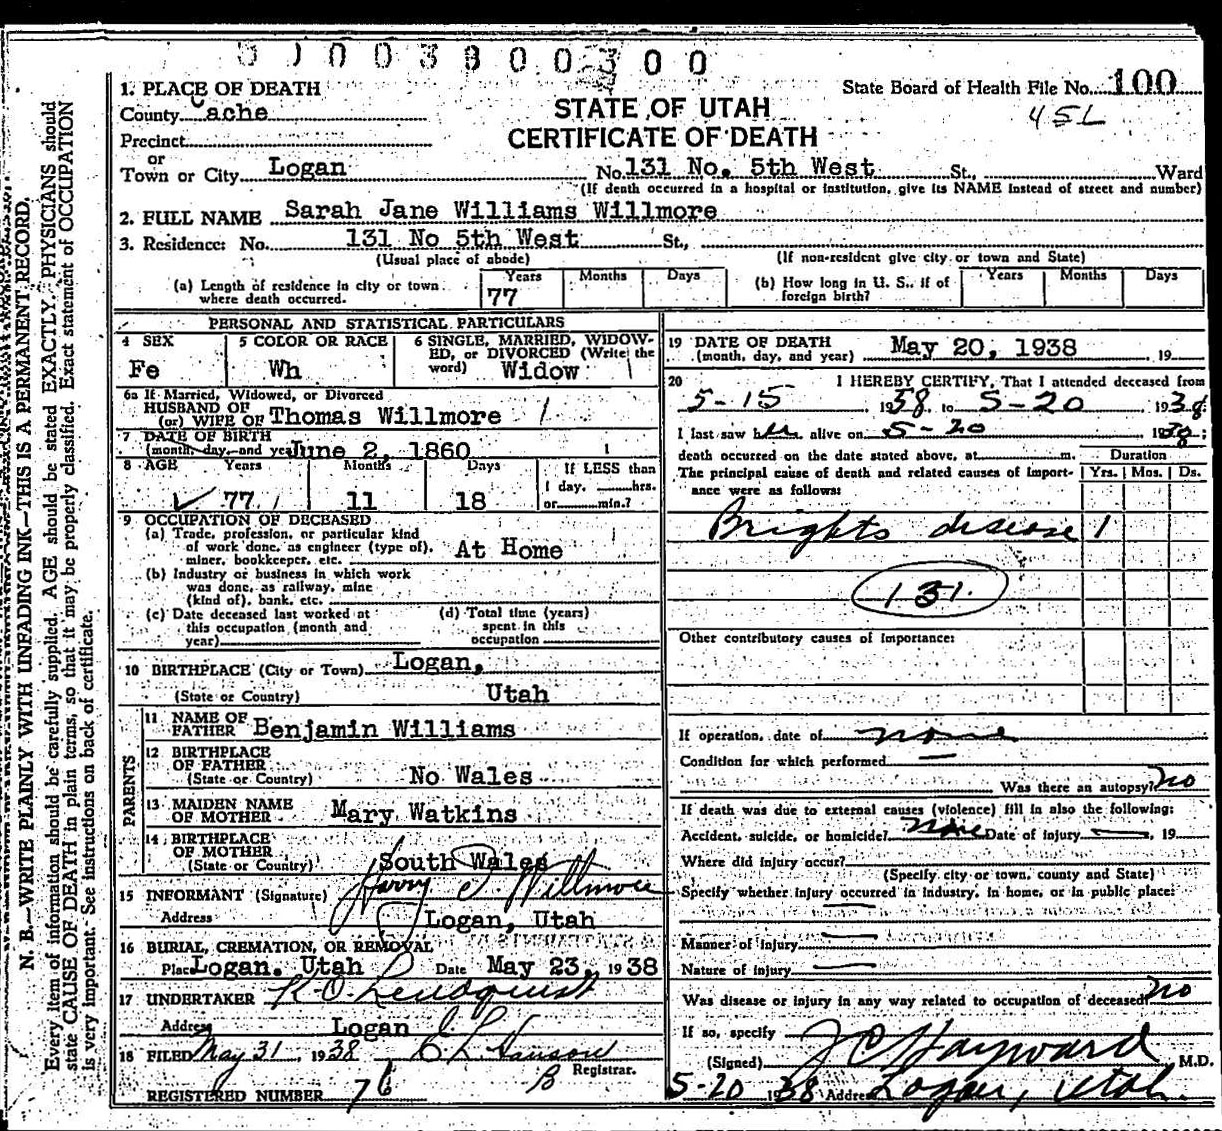 0 0 0 3 8 0 0 3 0 0
1. PLACE OF DEATH
State Board of Health File No. 100
County Cache
STATE OF UTAH
45L
CERTIFICATE OF DEATH
Precinct
or
Town or City Logan No. 131 No. 5th West St., Ward
(If death occurred in a hospital or institution, give its NAME instead of street and number)
2. FULL NAME Sarah Jane Williams Willmore
3. Residence: No. 131 No 5th West St.,
(Usual place of abode) (If non-resident give city or town and State)
(a) Length of residence in city or town where death occurred. Years 77 Months Days
(b) How long in U. S., if of foreign birth? Years Months Days
PERSONAL AND STATISTICAL PARTICULARS
4 SEX Fe
5 COLOR OR RACE Wh
6 SINGLE, MARRIED, WIDOWED, or DIVORCED (Write the word) Widow
6a If Married, Widowed, or Divorced
HUSBAND OF
(or) WIFE OF Thomas Willmore
7 DATE OF BIRTH
(month, day, and year) June 2, 1860
8 AGE Years Months Days If LESS than
1 day, hrs.
77 11 18 or min.?
9 OCCUPATION OF DECEASED
(a) Trade, profession, or particular kind
of work done, as engineer (type of), At Home
miner, bookkeeper, etc.
(b) Industry or business in which work
was done, as railway, mine
(kind of), bank, etc.
(c) Date deceased last worked at
this occupation (month and
year)
(d) Total time (years)
spent in this
occupation
10 BIRTHPLACE (City or Town) Logan,
(State or Country) Utah
PARENTS
11 NAME OF
FATHER Benjamin Williams
12 BIRTHPLACE
OF FATHER
(State or Country) No Wales
13 MAIDEN NAME
OF MOTHER Mary Watkins
14 BIRTHPLACE
OF MOTHER
(State or Country) South Wales
15 INFORMANT (Signature) Harry Willmore
Address Logan, Utah
16 BURIAL, CREMATION, OR REMOVAL
Place Logan. Utah Date May 23, 1938
17 UNDERTAKER K. O. Lindquist
Address Logan
18 FILED May 31, 1938 Hanson
Registrar.
REGISTERED NUMBER 76
19 DATE OF DEATH
(month, day, and year) May 20, 1938 19
20 I HEREBY CERTIFY, That I attended deceased from
5-15 1938, to 5-20, 1938
I last saw her alive on 5-20 1938;
death occurred on the date stated above, at m. Duration
The principal cause of death and related causes of importance were as follows: Yrs. Mos. Ds.
Brights disease 1
131.
Other contributory causes of importance:
If operation, date of none
Condition for which performed —
Was there an autopsy? no
If death was due to external causes (violence) fill in also the following:
Accident, suicide, or homicide? none Date of injury —, 19
Where did injury occur?
(Specify city or town, county and State)
Specify whether injury occurred in industry, in home, or in public place:
Manner of injury —
Nature of injury —
Was disease or injury in any way related to occupation of deceased? no
If so, specify
(Signed) J C Hayward M.D.
5-20 1938 Address Logan, Utah.
N. B.—WRITE PLAINLY WITH UNFADING INK—THIS IS A PERMANENT RECORD.
Every item of information should be carefully supplied. AGE should be stated EXACTLY. PHYSICIANS should
state CAUSE OF DEATH in plain terms, so that it may be properly classified. Exact statement of OCCUPATION
is very important. See instructions on back of certificate.